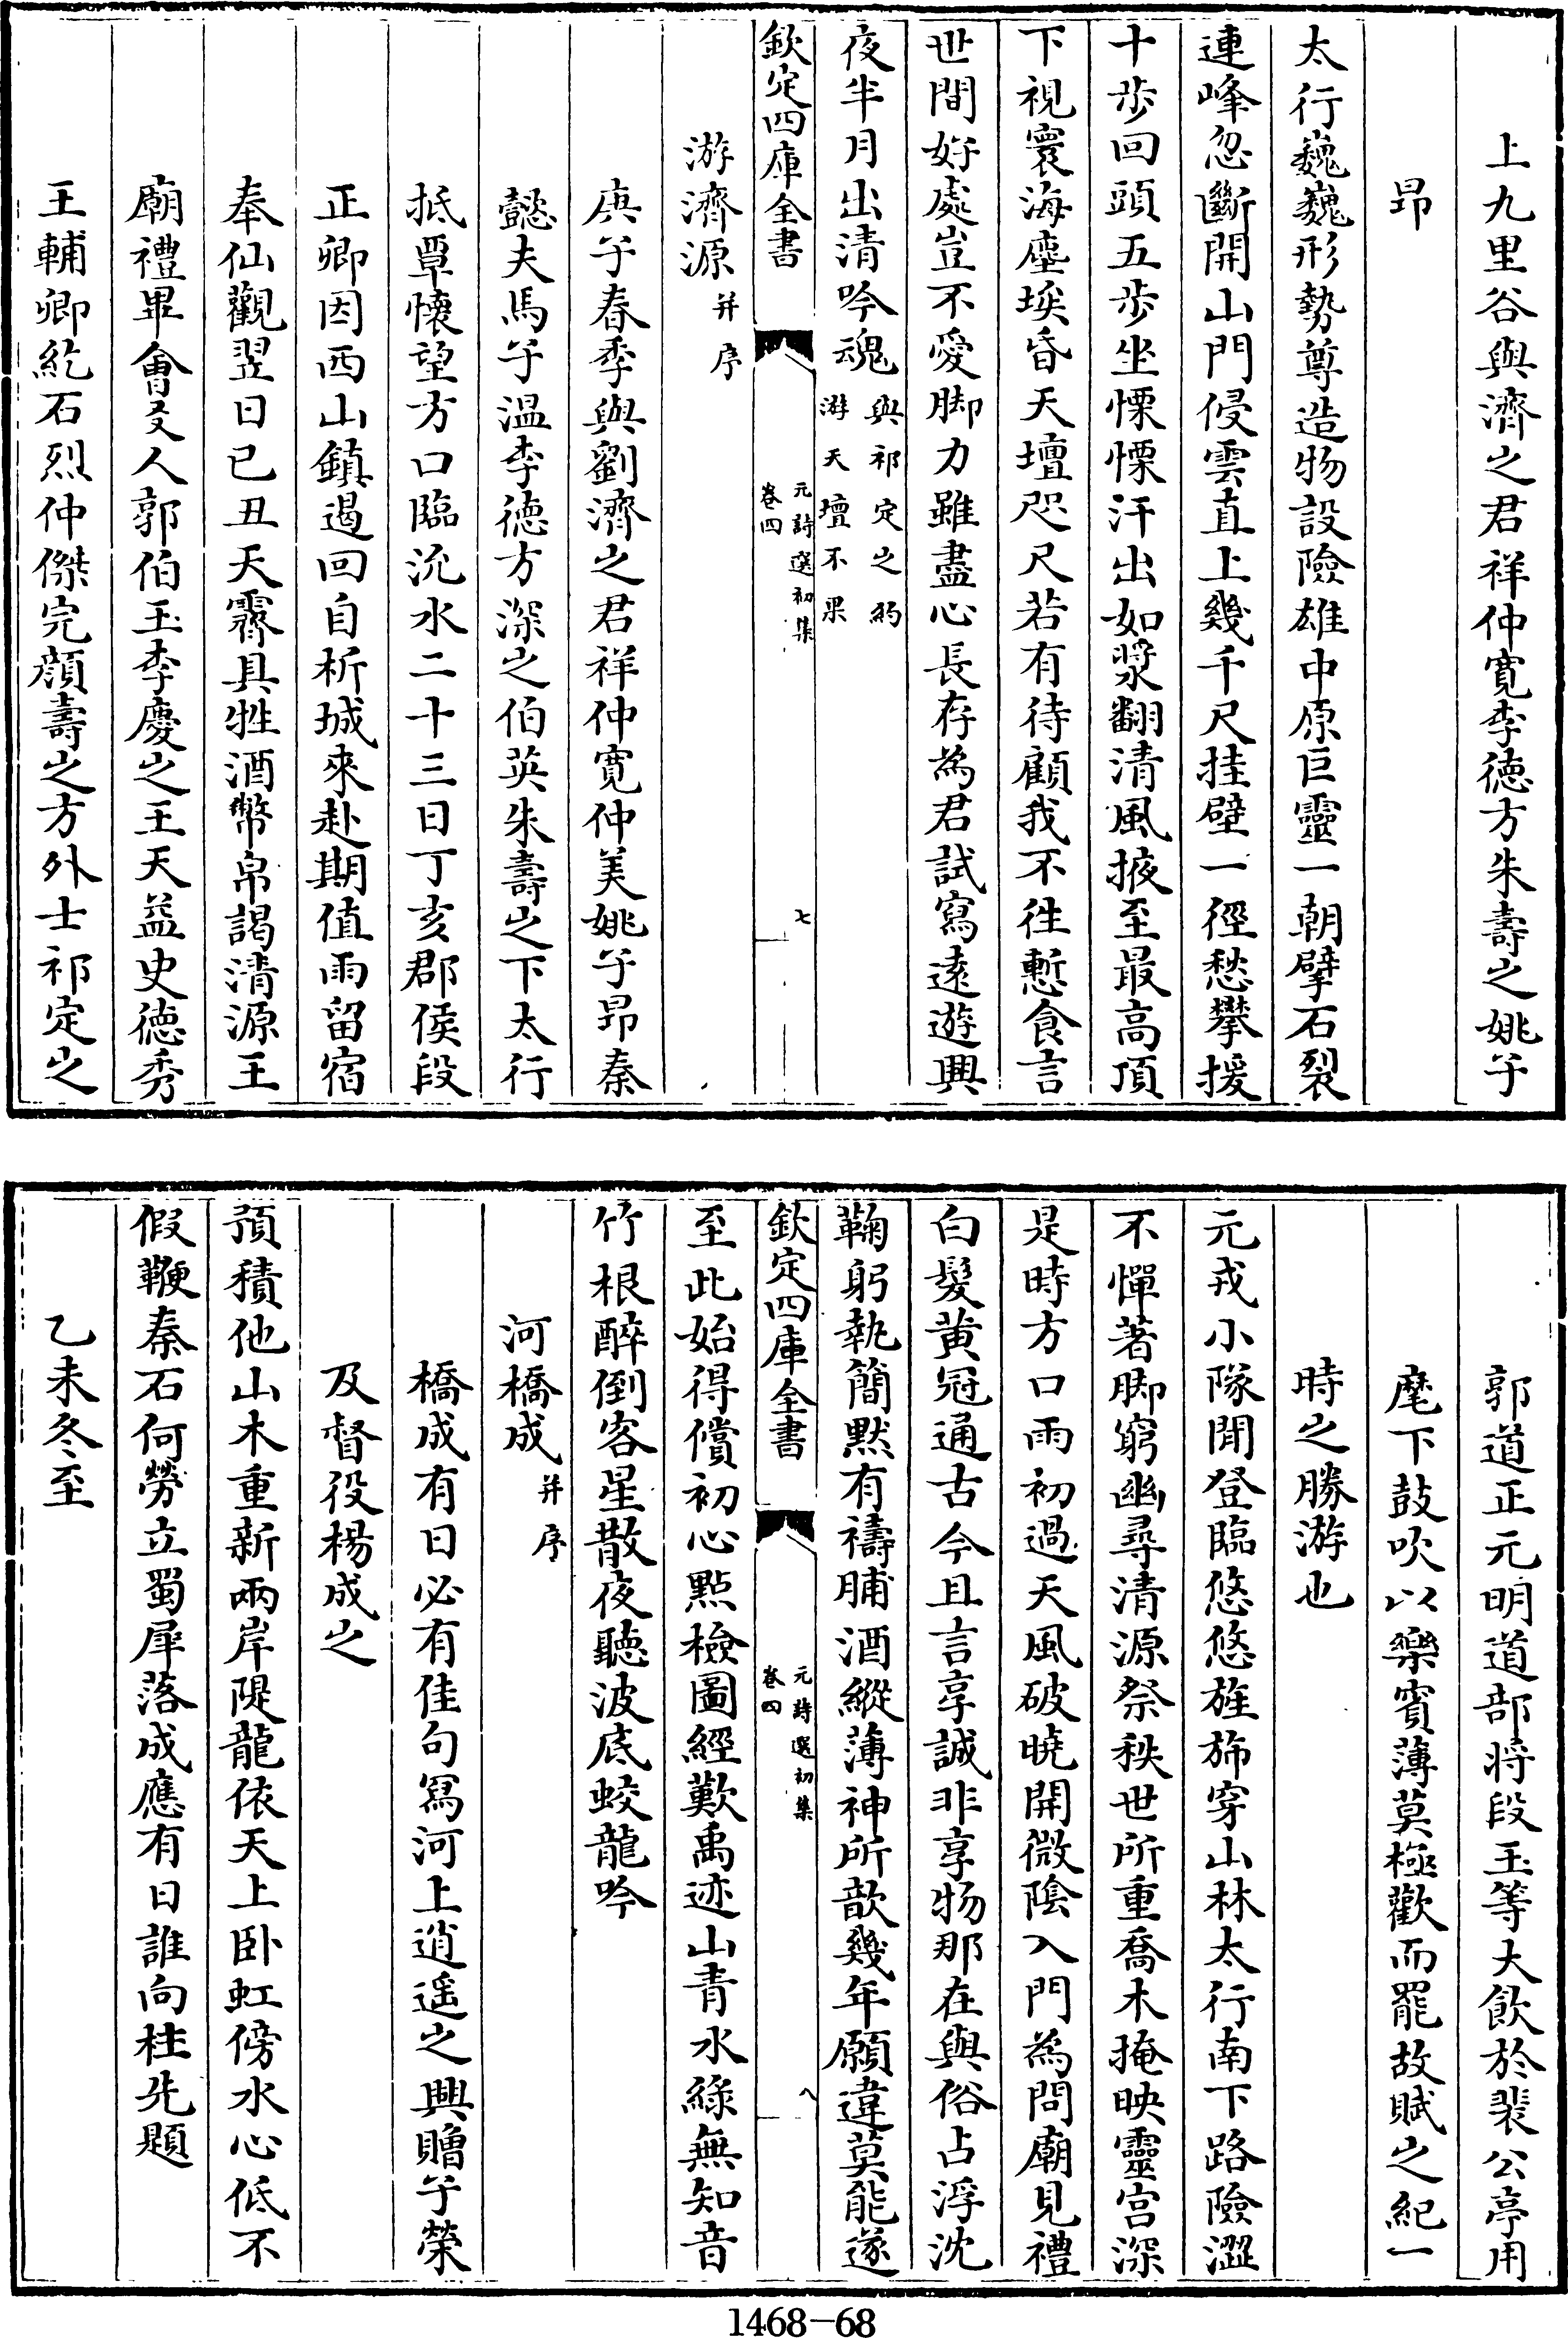 上九里谷與濟之君祥仲寛李徳方朱壽之姚子
昻
太行巍巍形勢尊造物設險雄中原巨靈一朝擘石裂
連峰忽斷開山門侵雲直上幾千尺挂壁一徑愁攀援
十步回頭五步坐慄慄汗出如漿翻清風掖至最高頂
下視寰海塵埃昏天壇咫尺若有待顧我不往慙食言
世間好處豈不愛脚力雖盡心長存為君試寫遠遊興
夜半月出清吟魂與祁定之約游天壇不果
欽定四庫全書
元詩選初集
卷四
七
游濟源并序
庚子春季與劉濟之君祥仲寛仲美姚子昻秦
懿夫馬子温李徳方深之伯英朱壽之下太行
抵覃懷望方口臨沇水二十三日丁亥郡侯段
正卿因西山鎮遏回自析城來赴期值雨留宿
奉仙觀翌日已丑天霽具牲酒幣帛謁清源王
廟禮畢會友人郭伯玉李慶之王天益史徳秀
王輔卿紇石烈仲傑完顔壽之方外士祁定之
郭道正元明道部將段玉等大飲於裴公亭用
麾下鼓吹以樂賓薄莫極歡而罷故賦之紀一
時之勝游也
元戎小隊閒登臨悠悠旌斾穿山林太行南下路險澀
不憚著脚窮幽尋清源祭秩世所重喬木掩映靈宫深
是時方口雨初過天風破曉開微陰入門為問廟見禮
白髮黄冠通古今且言享誠非享物那在與俗占浮沈
鞠躬執簡默有禱脯酒縱薄神所歆幾年願違莫能遂
欽定四庫全書
元詩選初集
卷四
八
至此始得償初心㸃檢圖經歎禹迹山青水緑無知音
竹根醉倒客星散夜聽波底蛟龍吟
河橋成并序
橋成有日必有佳句冩河上逍遥之興贈子榮
及督役楊成之
預積他山木重新兩岸隄龍依天上卧虹傍水心低不
假鞭秦石何勞立蜀犀落成應有日誰向柱先題
乙未冬至
1468－68